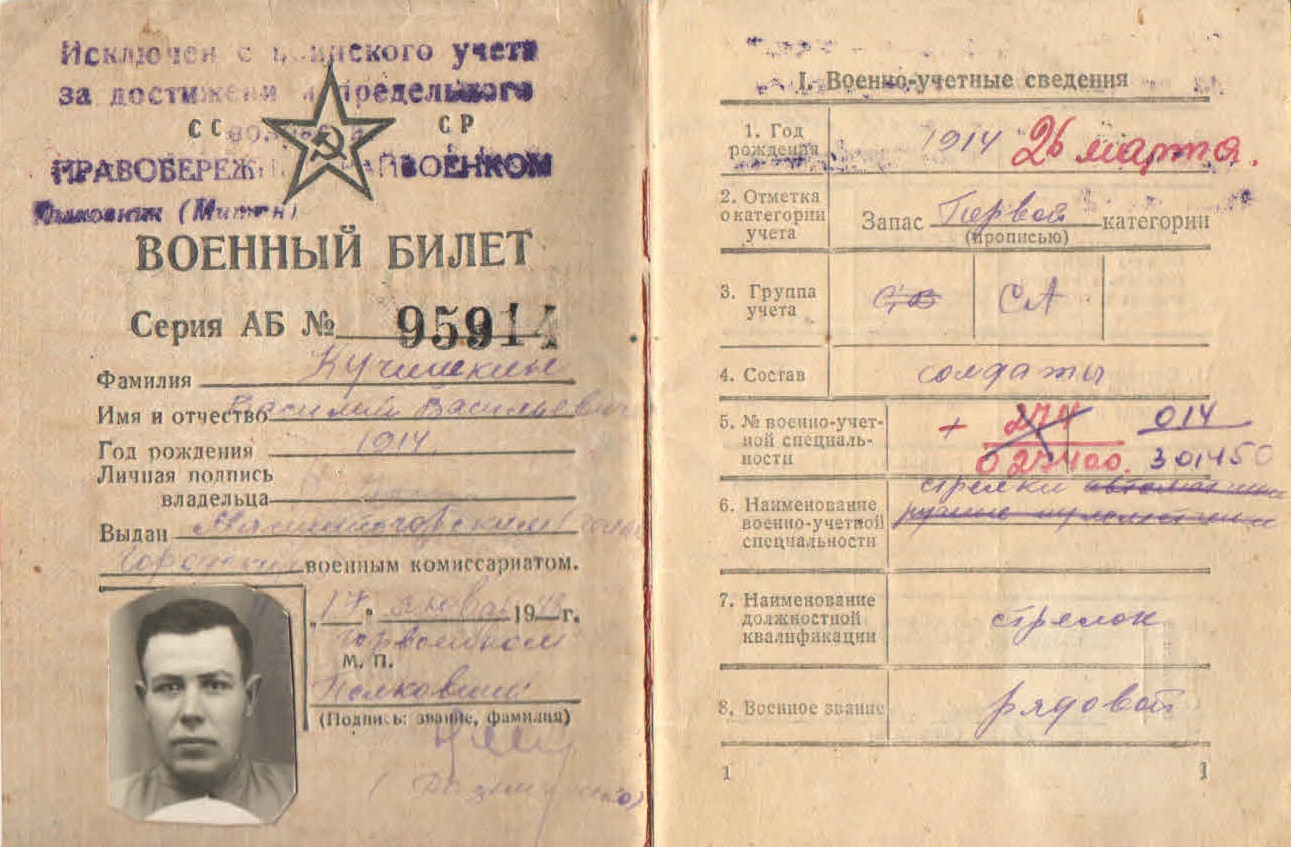 Исключен с воинского учета
за достижени предельного
СС СР
ПРАВОБЕРЕЖ РАЙВОЕНКОМ
Полковник
ВОЕННЫЙ БИЛЕТ
Серия АБ № 95914
Фамилия
Имя и отчество Василий Васильевич
Год рождения 1914
Личная подпись
владельца
Выдан Магнитогорским
военным комиссариатом.
„17" января 19 г.
Горвоенком
М. П.
Полковник
(Подпись: звание, фамилия)
I. Военно-учетные сведения
1. Год
рождения
1914 26 марта.
2. Отметка
о категории
учета
Запас Первой категории
(прописью)
3. Группа
учета
СА
4. Состав
солдаты
5. № военно-учет-
ной специаль-
ности
+ 014
023400. 301450
6. Наименование
военно-учетной
специальности
стрелки
7. Наименование
должностной
квалификации
стрелок
8. Военное звание
рядовой
1 1